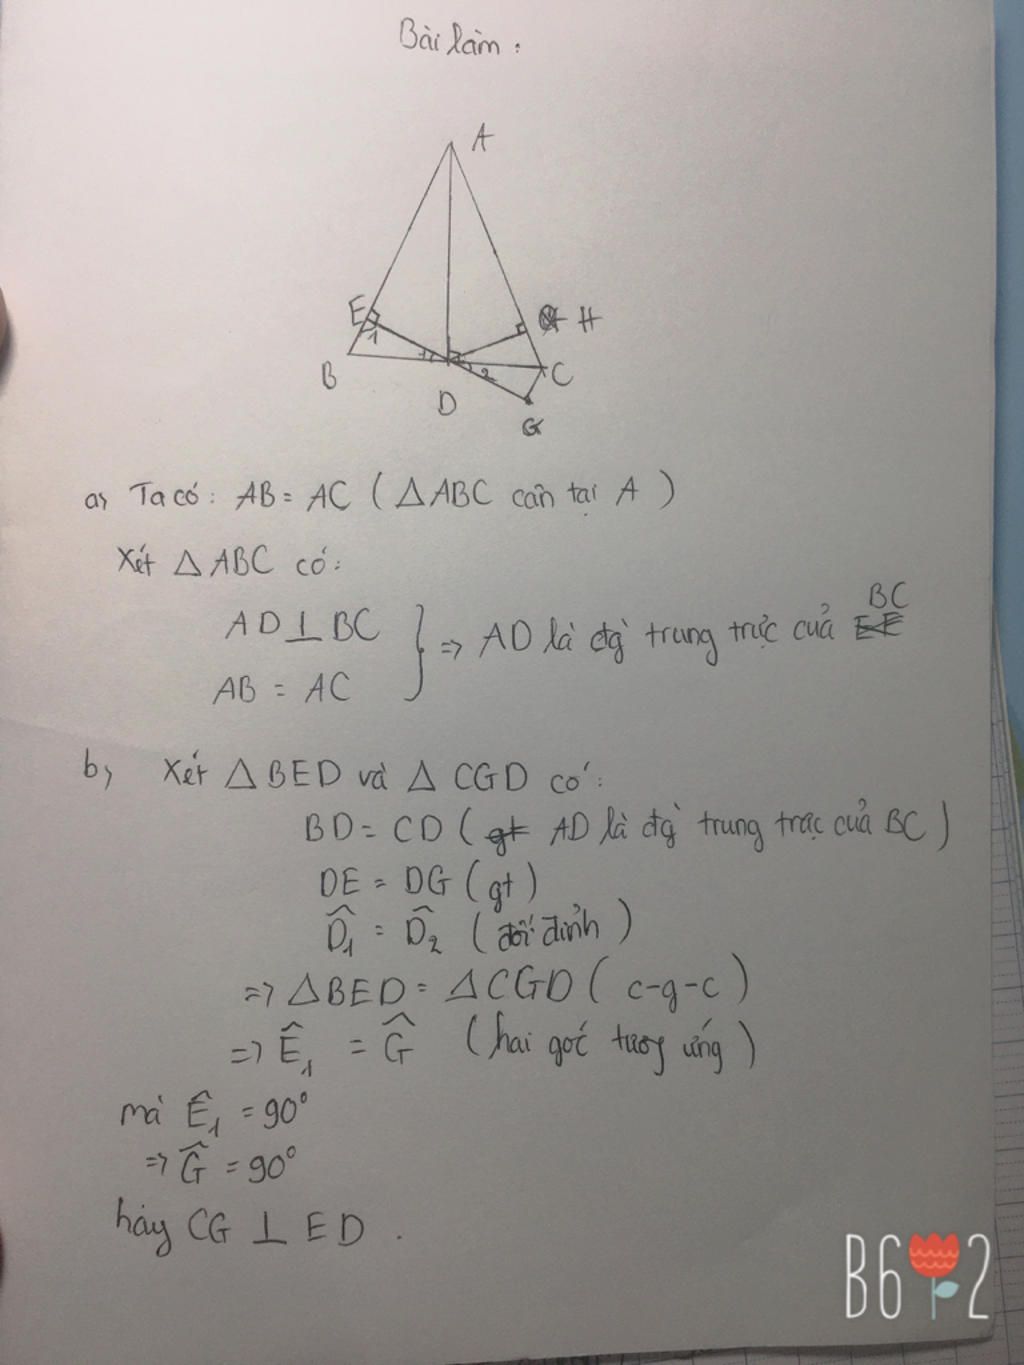 Bài làm :
A
E
H
1
1
2
B
C
D
G
a, Ta có : AB = AC ( △ABC cân tại A )
Xét △ ABC có :
BC
AD ⊥ BC
AB = AC
} => AD là đg` trung trực của
b, Xét △ BED và △ CGD có :
BD = CD ( AD là đg` trung trực của BC )
DE = DG ( gt )
D̂₁ = D̂₂ ( đối đỉnh )
=> △BED = △CGD ( c-g-c )
=> Ê₁ = Ĝ ( hai góc tương ứng )
mà Ê₁ = 90°
=> Ĝ = 90°
hay CG ⊥ ED .
B6 2